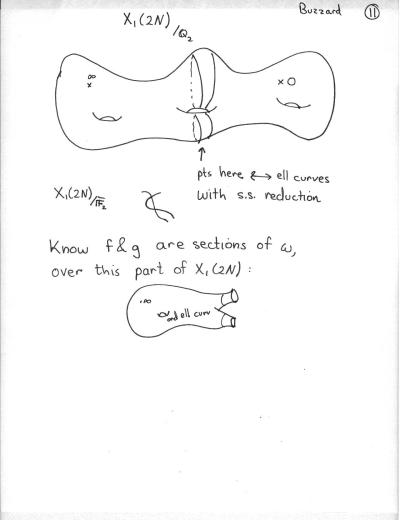 Buzzard 11
X₁(2N)/Q₂
∞
x
x O
pts here ↔ ell curves
with s.s. reduction
X₁(2N)/F̅₂
Know f & g are sections of ω,
over this part of X₁(2N) :
.∞
ord ell curv